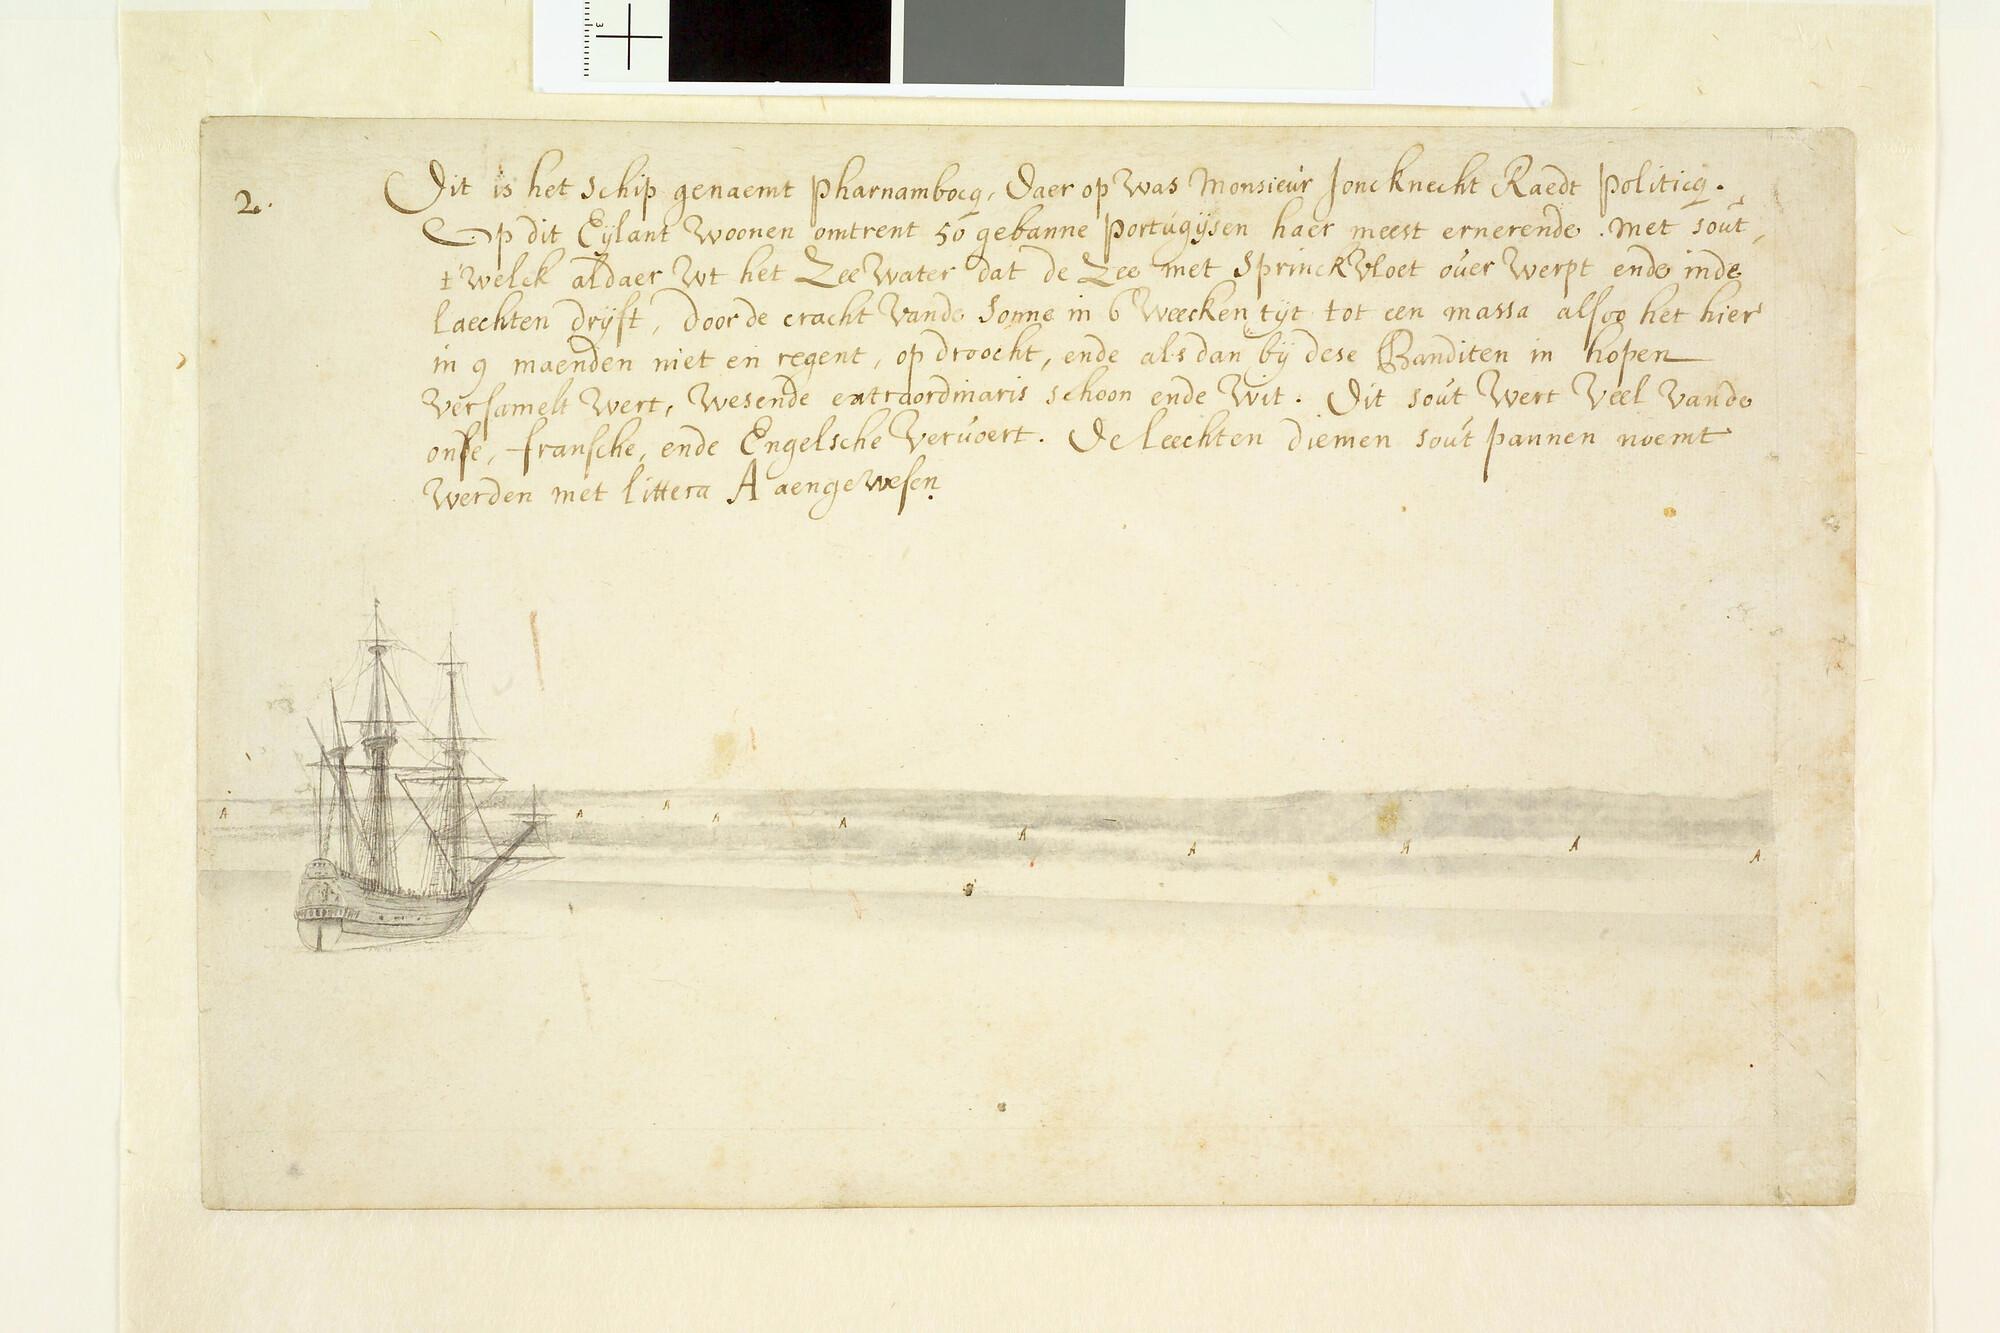 3
2.
Dit is het schip genaemt Pharnambocq, Daer op was Monsieur Jonc knecht Raedt Politicq.
Op dit Eylant woonen omtrent 50 gebanne Portugijsen haer meest ernerende . met sout,
t'welck aldaer wt het Zee water dat de Zee met sprinckvloet over werpt ende inde
laechten drijft, door de cracht vande Sonne in 6 weecken tijt tot een massa alsoo het hier
in 9 maenden niet en regent, op droocht, ende als dan bij dese Banditen in hopen
versamelt wert, wesende extraordinaris schoon ende wit. Dit sout wert veel vande
onse, fransche, ende Engelsche vervoert. De leechten diemen sout pannen noemt
werden met littera A aengewesen
A A A A A A A A A A